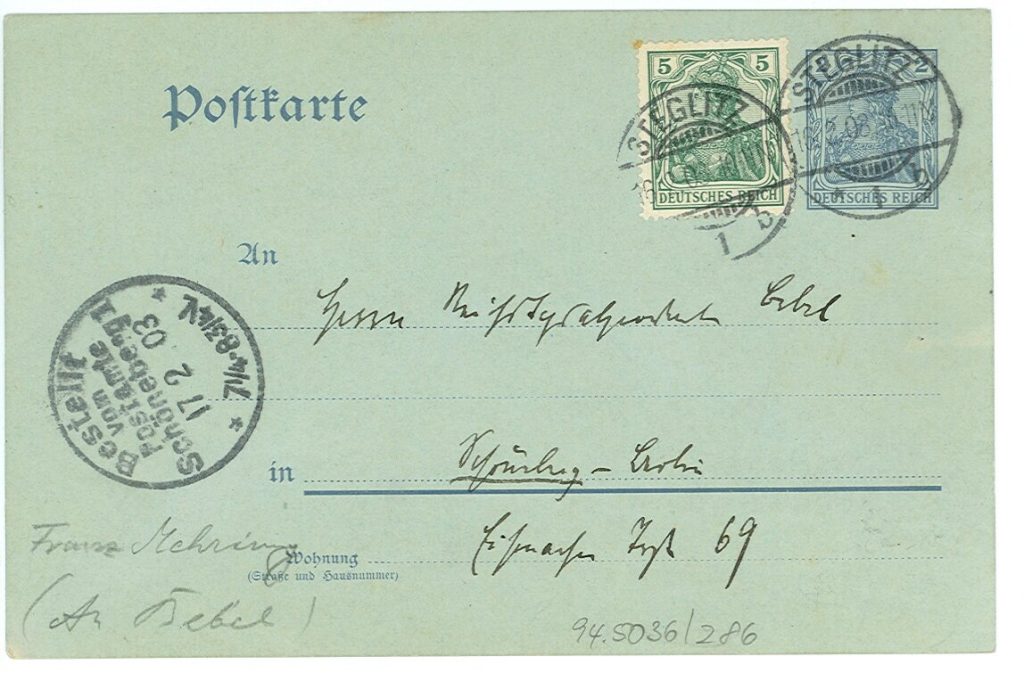 Postkarte
5 5
DEUTSCHES REICH
2
DEUTSCHES REICH
STEGLITZ
1 b
STEGLITZ
* 1 b
An
Herrn Reichstagsabgeordneten Bebel
Bestellt
vom
Postamte
Schöneberg 1
17 2 03
7 1/4-8 3/4 V
in
Schöneberg - Berlin
Wohnung
(Straße und Hausnummer)
Eisenacher 69
Franz Mehring
(An Bebel)
94.5036/286